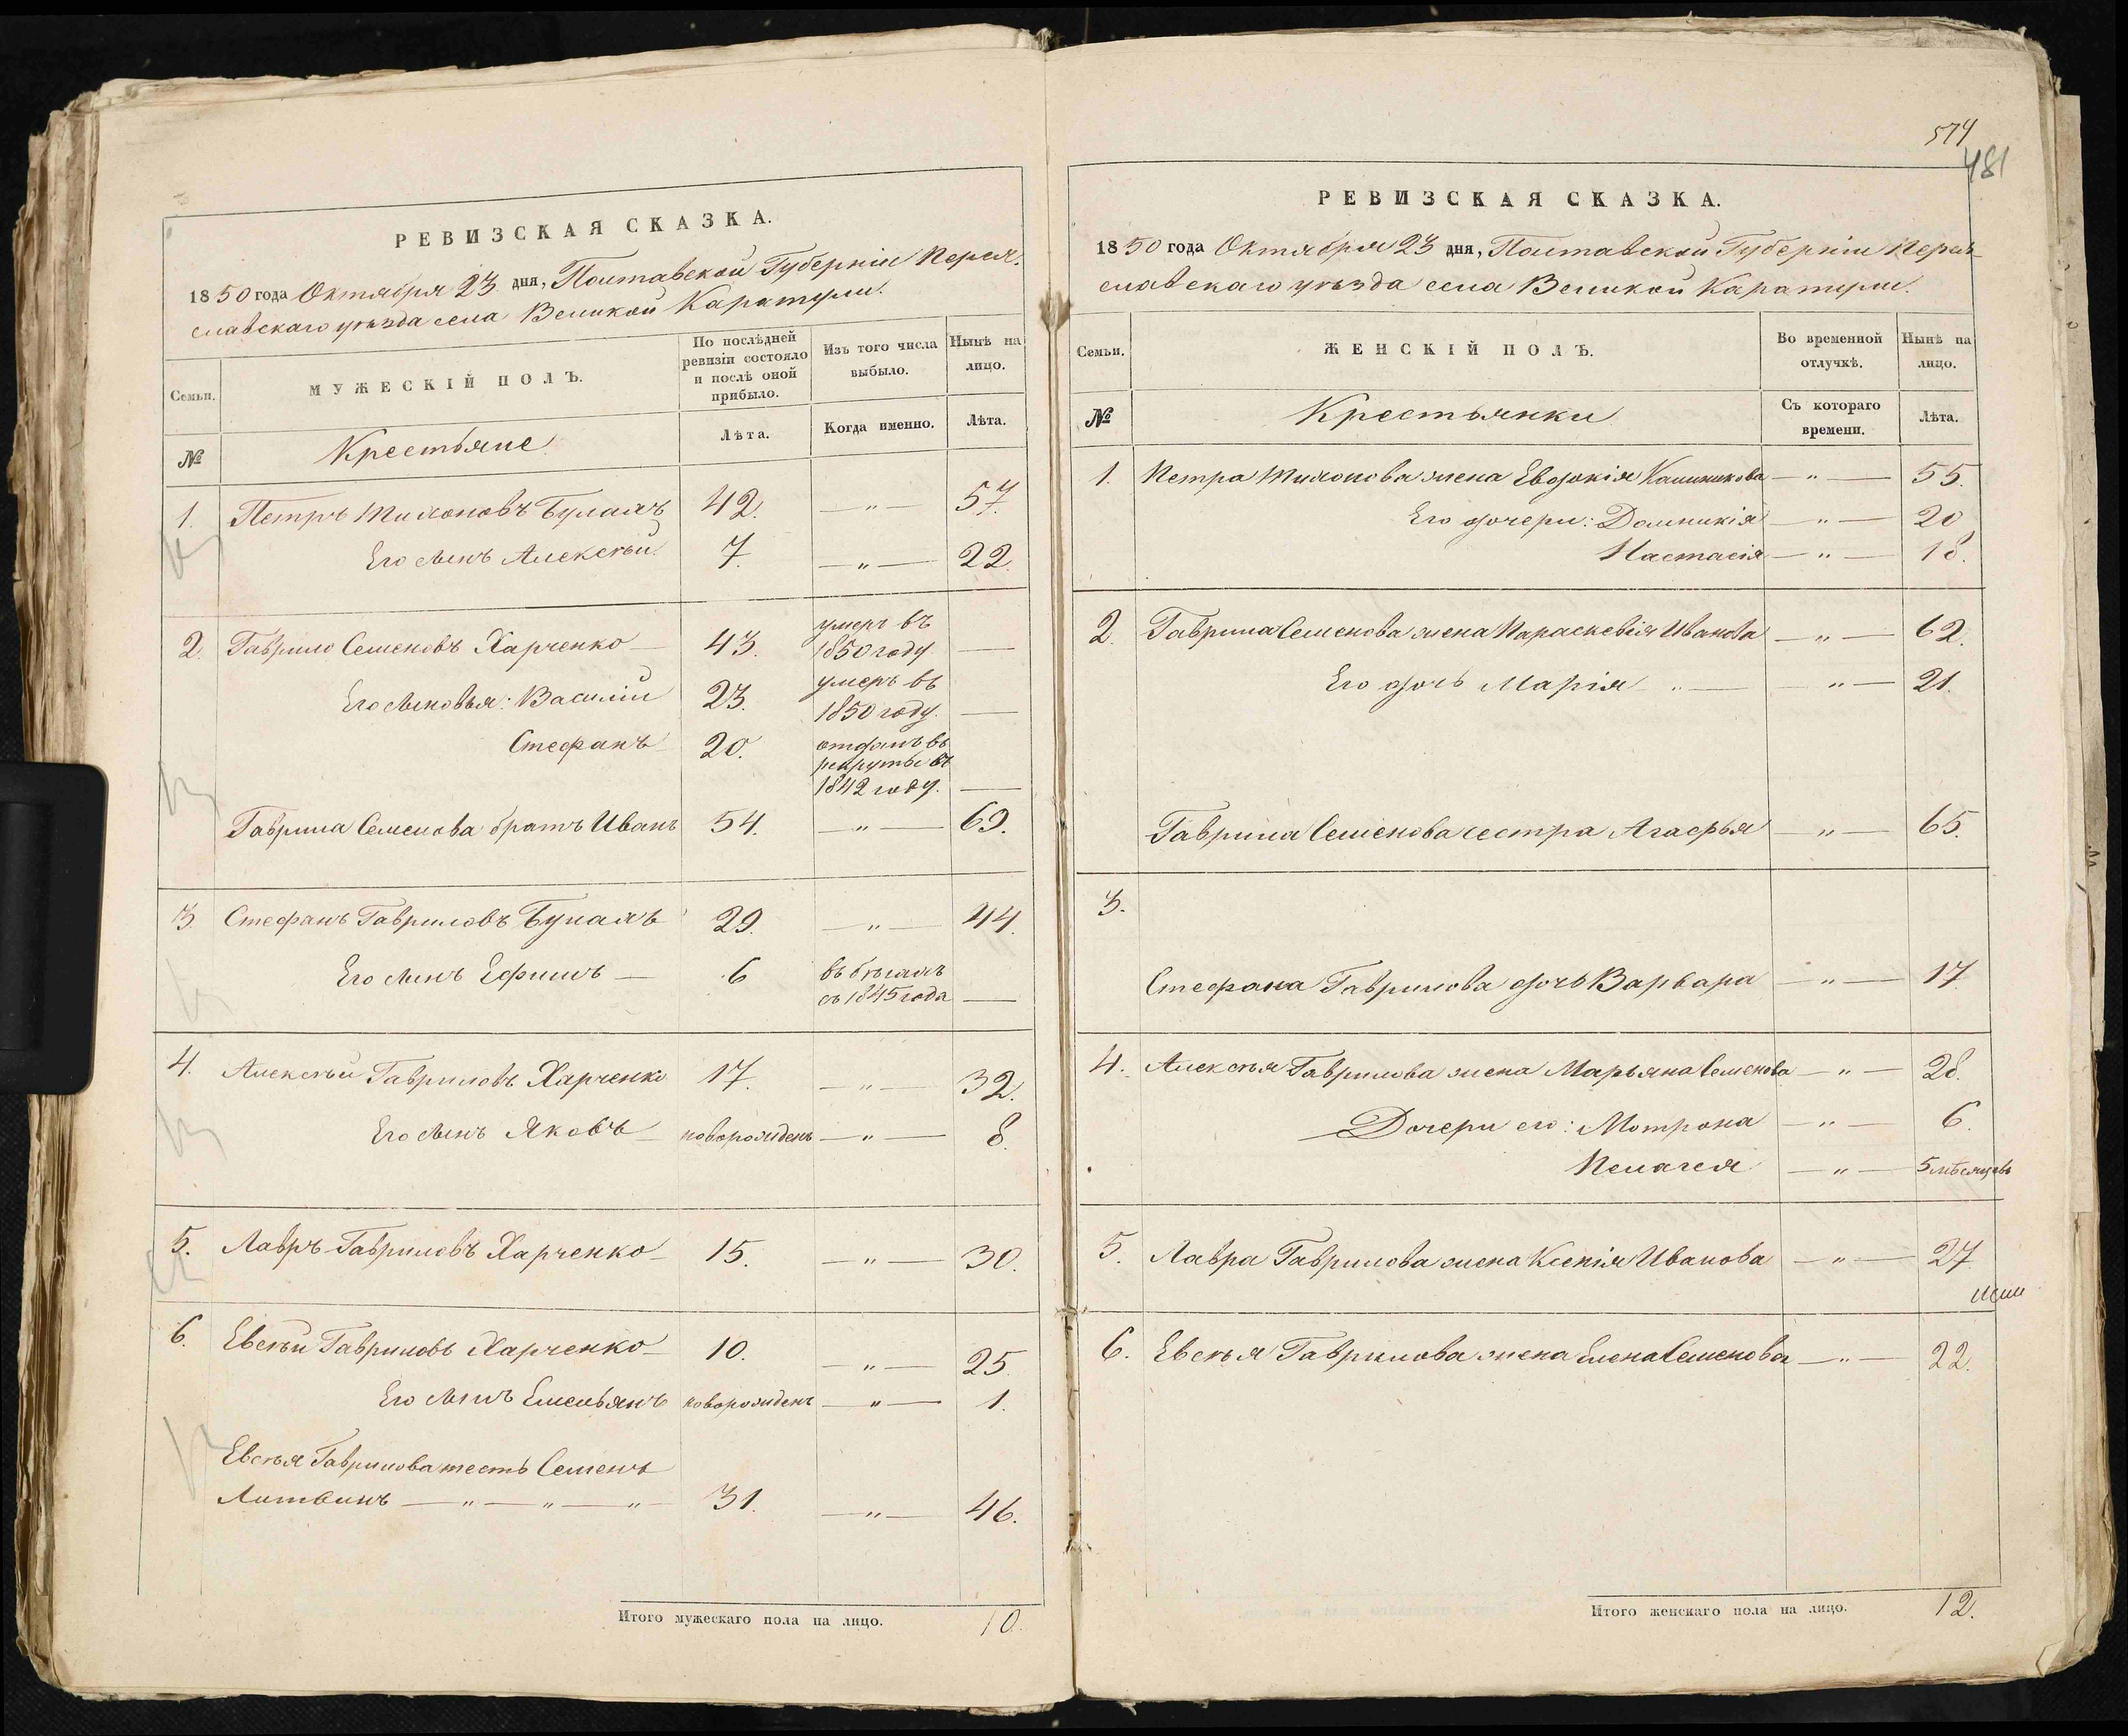 РЕВИЗСКАЯ СКАЗКА.
1850 года Октября 23 дня, Полтавской Губерніи Перея-
славскаго уѣзда села Великой Каратули.
Семьи.
МУЖЕСКІЙ ПОЛЪ.
По послѣдней ревизіи состояло и послѣ оной прибыло.
Изъ того числа выбыло.
Нынѣ на лицо.
№
Крестьяне
Лѣта.
Когда именно.
Лѣта.
1. Петръ Тихоновъ Булахъ 42. — " — 57.
Его сынъ Алексѣй 7. — " — 22.
2. Гаврило Семеновъ Харченко — 43. умеръ въ 1850 году —
Его сыновья: Василій 23. умеръ въ 1850 году. —
Стефанъ 20. отданъ въ рекруты въ 1842 году. —
Гаврила Семенова братъ Иванъ 54. — " — 69.
3. Стефанъ Гавриловъ Булахъ 29. — " — 44.
Его сынъ Ефимъ — 6 въ бѣгахъ съ 1845 года —
4. Алексѣй Гавриловъ Харченко 17. — " — 32.
Его сынъ Яковъ — новорожденъ — " — 8.
5. Лавръ Гавриловъ Харченко — 15. — " — 30.
6. Евсѣй Гавриловъ Харченко — 10. — " — 25.
Его сынъ Емельянъ новорожденъ — " — 1.
Евсѣя Гаврилова тесть Семенъ
Литвинъ — " — " — " — 31. — " — 46.
Итого мужескаго пола на лицо. 10.
574
481
РЕВИЗСКАЯ СКАЗКА.
1850 года Октября 23 дня, Полтавской Губерніи Перея-
славскаго уѣзда села Великой Каратули.
Семьи.
ЖЕНСКІЙ ПОЛЪ.
Во временной отлучкѣ.
Нынѣ на лицо.
№
Крестьянки
Съ котораго времени.
Лѣта.
1. Петра Тихонова жена Евдокія Калиникова — " — 55.
Его дочери: Домникія — " — 20
Настасія — " — 18.
2. Гаврила Семенова жена Параскевія Иванова — " — 62.
Его дочь Марія — " — — " — 21.
Гаврила Семенова сестра Агафья — " — 65.
3.
Стефана Гаврилова дочь Варвара — " — 17.
4. Алексѣя Гаврилова жена Марьяна Семенова — " — 28.
Дочери его: Мотрона — " — 6.
Пелагея — " — 5 мѣсяцовъ
5. Лавра Гаврилова жена Ксенія Иванова — " — 27
6. Евсѣя Гаврилова жена Елена Семенова — " — 22.
Итого женскаго пола на лицо. 12.